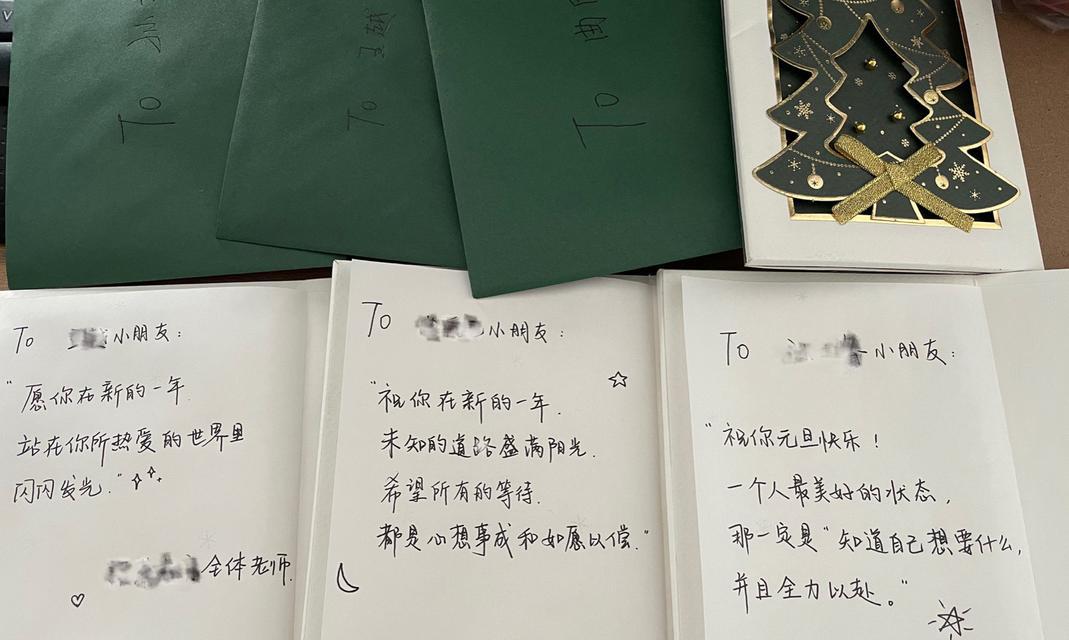 To
To 王越
To
To 小朋友:
"愿你在新的一年
站在你所热爱的世界里
闪闪发光."
全体老师.
To 小朋友:
"祝你在新的一年.
未知的道路盛满阳光.
希望所有的等待.
都是心想事成和如愿以偿."
To 小朋友:
"祝你元旦快乐!
一个人最美好的状态,
那一定是"知道自己想要什么,
并且全力以赴。"